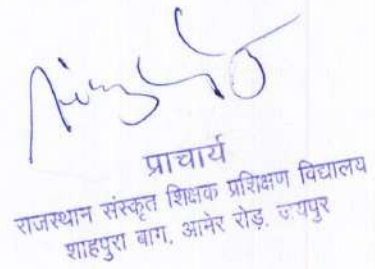 प्राचार्य
राजस्थान संस्कृत शिक्षक प्रशिक्षण विद्यालय
शाहपुरा बाग, आमेर रोड़, जयपुर